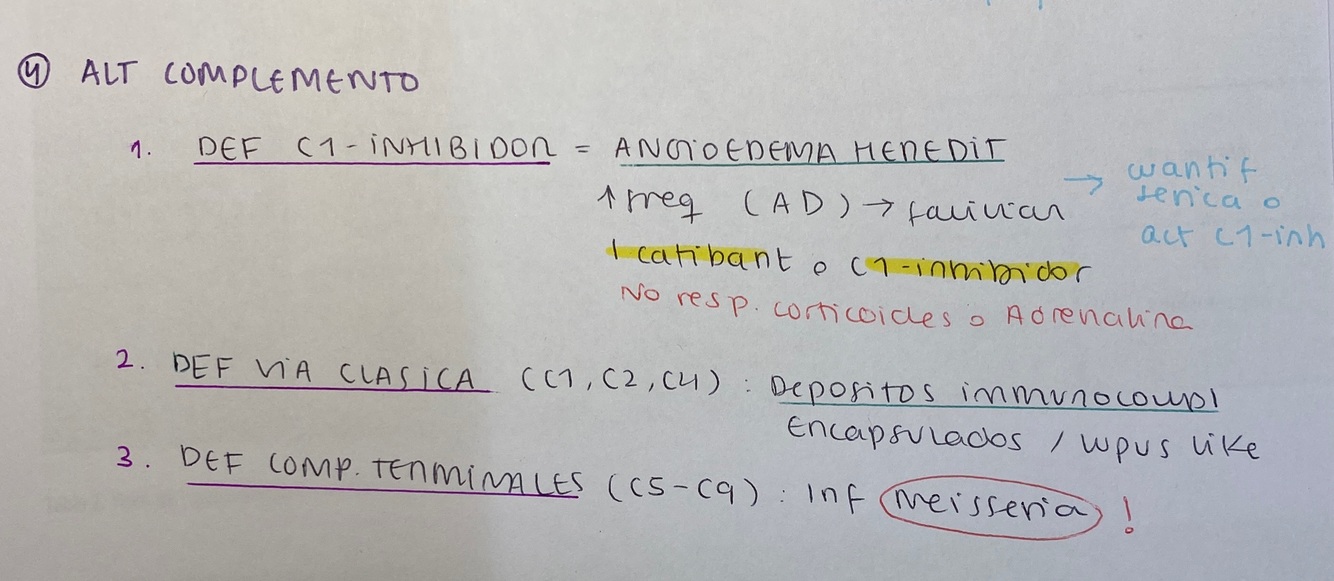 ④ ALT COMPLEMENTO
1. DEF C1-INHIBIDOR = ANGIOEDEMA HEREDIT
↑ freq (AD) → familiar → cuantif
sérica o
act C1-inh
Icatibant o C1-inhibidor
No resp. corticoides o Adrenalina
2. DEF VIA CLASICA (C1, C2, C4) : Depositos immunocompl
Encapsulados / lupus like
3. DEF COMP. TERMINALES (C5-C9) : Inf Neisseria !